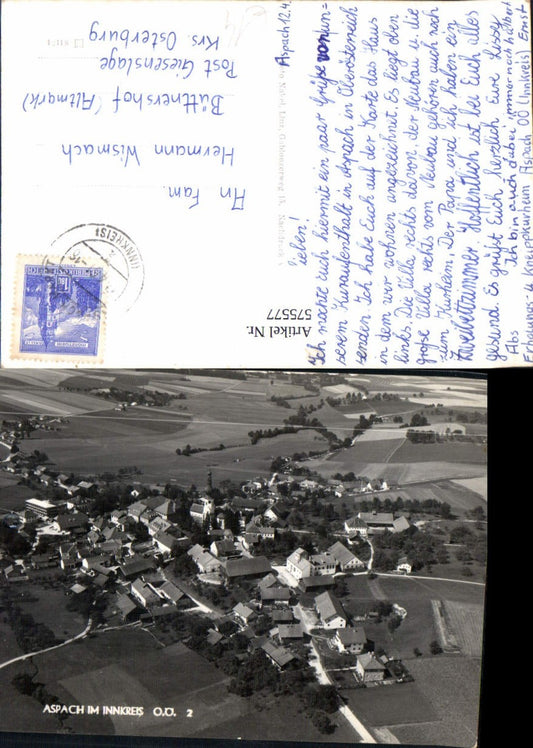 Aspach 12.4.
Ihr Lieben!
Ich möchte euch hiermit ein paar Grüße von un-
serem Kuraufenthalt in Aspach in Oberösterreich
senden. Ich habe Euch auf der Karte das Haus
in dem wir wohnen angezeichnet. Es liegt oben
links. Die Villa rechts davon, der Neubau u. die
große Villa rechts vom Neubau gehören auch noch
zum Kurheim. Der Papa und ich haben ein
Zweibettzimmer. Hoffentlich ist bei Euch alles
gesund. Es grüßt Euch herzlich Eure Lissy
Ich bin auch dabei, immer noch halbert Ernst
Abs
Erholungs- u Kneippkurheim Aspach OÖ (Innkreis)
An Fam.
Hermann Wismach
Büttnershof (Altmark)
Post Giesenslage
Krs. Osterburg
(INNKREIS)
Artikel Nr.
575577
ASPACH IM INNKREIS O.Ö. 2